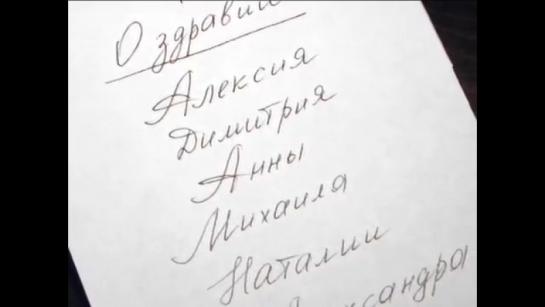 О здравии
Алексия
Димитрия
Анны
Михаила
Наталии
Александра